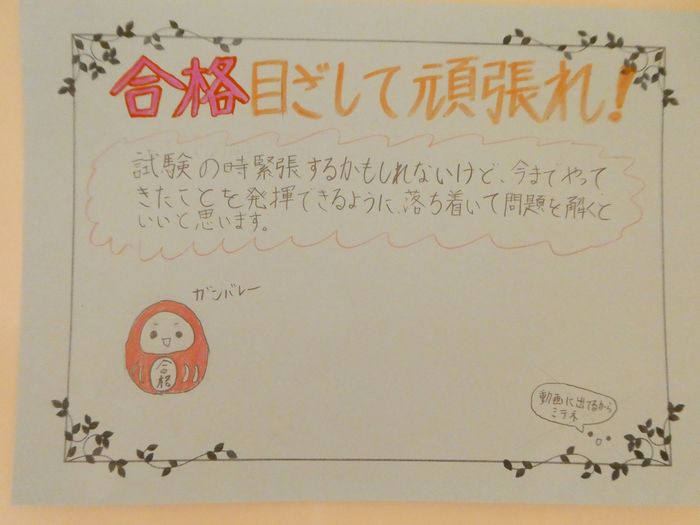 合格目ざして頑張れ!
試験の時緊張するかもしれないけど、今までやって
きたことを発揮できるように、落ち着いて問題を解くと
いいと思います。
ガンバレー
合格
動画に出てるから
ミテネ